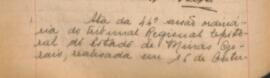 Ata da 44ª sessão ordiná
ria do Tribunal Regional Eleito
ral do Estado de Minas Ge
rais, realizada em 16 de